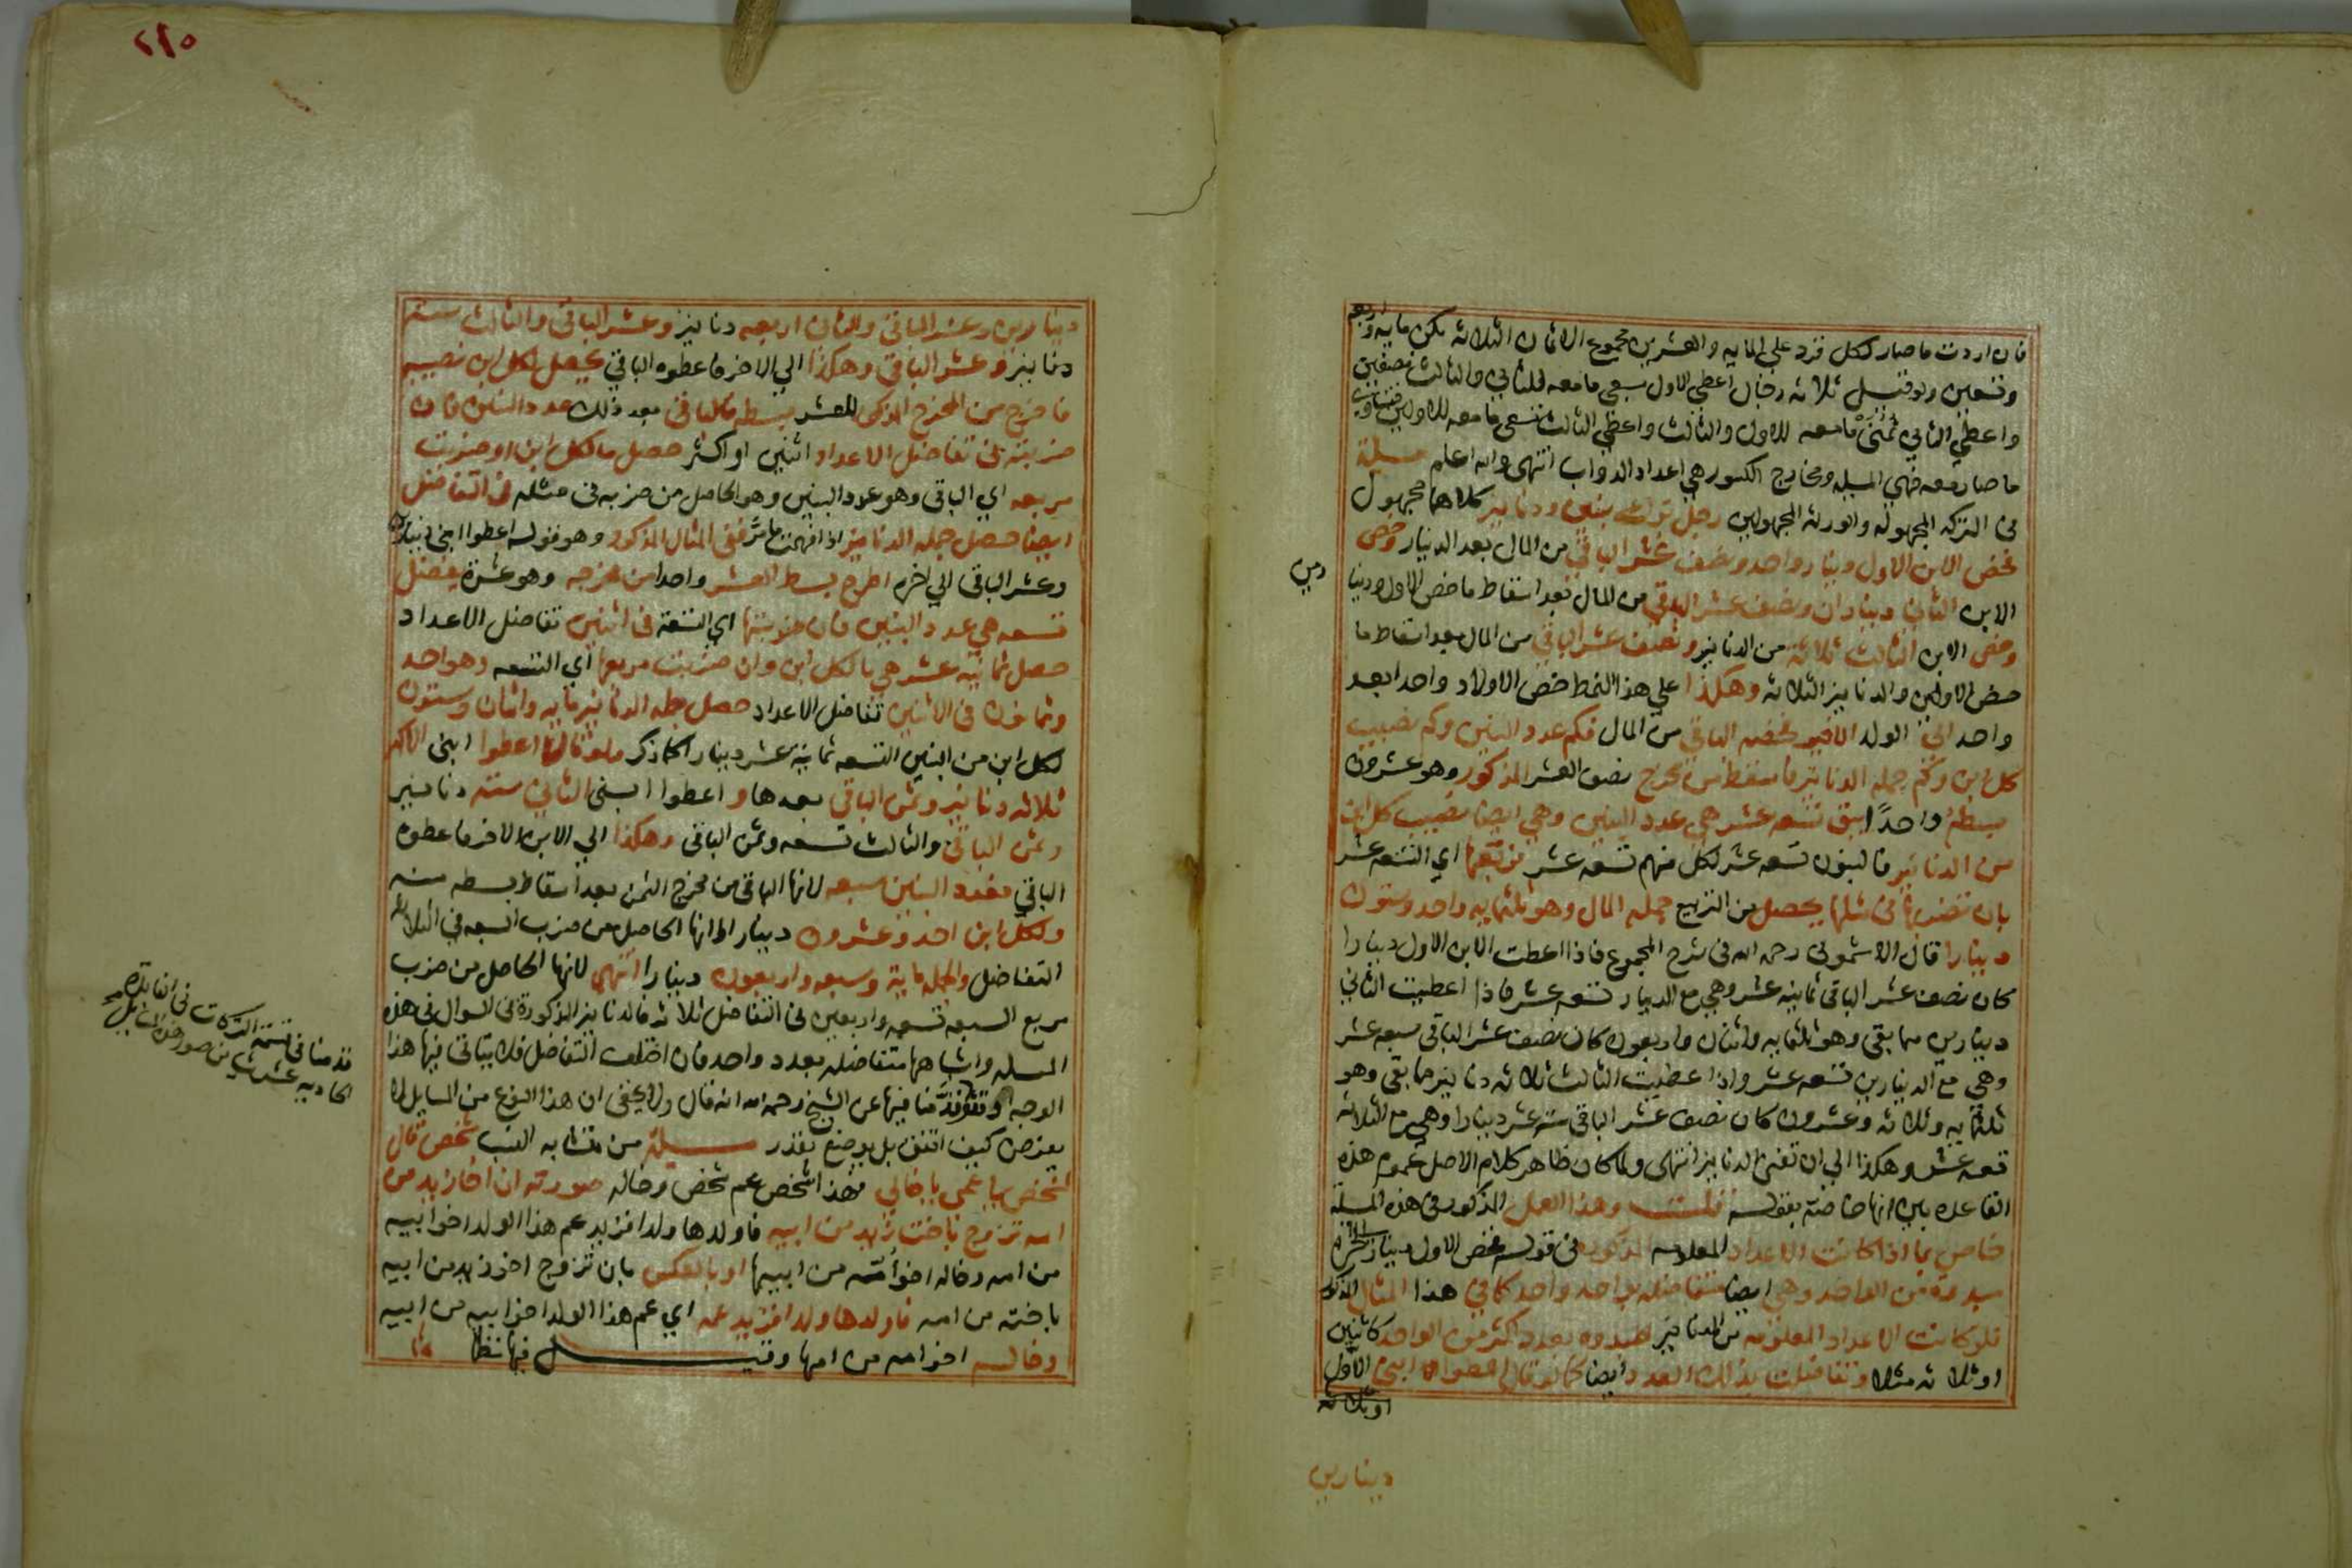 فان اردت ما صار لكل فزد علي المايه والعشرين مجموع الاثمان الثلاثه يكن مايه واربعه
وتسعين ولو قيل ثلاثه رجال اعطي الاول سبعي مامعه للثاني والثالث نصفين
واعطي الثاني ثمني مامعه للاول والثالث واعطي الثالث تسعي مامعه للاولين فتساوي
ما صار معه فهي المسيله ومخارج الكسور هي اعداد الدواب انتهي والله اعلم مسيلة
في التركه المجهوله والورثه المجهولين رجل ترك بنين ودنانير كلاهما مجهول
فخص الابن الاول دينار واحد ونصف عشر الباقي من المال بعد الدينار وخص
الابن الثاني ديناران ونصف عشر الباقي من المال بعد اسقاط ما خص الاول ودينا
رين
وخص الابن الثالث ثلاثة من الدنانير ونصف عشر الباقي من المال بعد اسقاط ما
خص الاولين والدنانير الثلاثه وهكذا علي هذا النمط خص الاولاد واحدا بعد
واحد الي الولد الاخير فخصه الباقي من المال فكم عدد البنين وكم نصيب
كل ابن وكم جمله الدنانير فاسقط من مخرج نصف العشر المذكور وهو عشرون
بسطه واحدًا يبق تسعه عشر هي عدد البنين وهي ايضا نصيب كل ابن
من الدنانير فالبنون تسعه عشر لكل منهم تسعه عشر فربعها اي التسعه عشر
بان تضربها في مثلها يحصل من التربيع جمله المال وهو ثلثمايه واحد وستون
دينارا قال الاشموني رحمه الله في شرح المجموع فاذا اعطيت الابن الاول دينارا
كان نصف عشر الباقي ثمانيه عشر وهي مع الدينار تسعه عشر فاذا اعطيت الثاني
دينارين مما بقي وهو ثلثمايه واثنان واربعون كان نصف عشر الباقي سبعه عشر
وهي مع الدينارين تسعه عشر واذا اعطيت الثالث ثلاثه دنانير مما بقي وهو
ثلثمايه وثلاثه وعشرون كان نصف عشر الباقي سته عشر دينارا وهي مع الثلاثه
تسعه عشر وهكذا الي ان تفني الدنانير انتهي ولما كان ظاهر كلام الاصل عموم هذه
القاعده بين انها خاصة بقوله قلت وهذا العمل المذكور في هذه المسيلة
خاص بما اذا كانت الاعداد المعلومه المذكوره في قوله فخص الاول دينار الي اخره
مبدوة من الواحد وهي ايضا متفاضله بواحد واحد كما في هذا المثال المذكور
فلو كانت الاعداد المعلومه من الدنانير مبدوه بعدد اكثر من الواحد كاثنين
او ثلاثه مثلا وتفاضلت بذلك العدد ايضا كما لو قال اعطوا ابني الاول
او ثلاثه
دينارين
٢٦٥
دينارين وعشر الباقي والثاني اربعه دنانير وعشر الباقي والثالث ستة
دنانير وعشر الباقي وهكذا الي الاخر فاعطوه الباقي يحصل لكل ابن نصيبه
فاخرج من المخرج الذي للعشر بسطه فالباقي بعد ذلك عدد البنين فان
ضربته في تفاضل الاعداد اثنين او اكثر حصل ما لكل ابن او ضربت
مربعه اي الباقي وهو عدد البنين وهو الحاصل من ضربه في مثله في التفاضل
ايضا حصل جمله الدنانير اذا فهمت ما مرَّ ففي المثال المذكور وهو قوله اعطوا ابني دينارين
وعشر الباقي الي اخره اطرح بسط العشر واحدا من مخرجه وهو عشرة يفضل
تسعه هي عدد البنين فان ضربتها اي التسعة في اثنين تفاضل الاعداد
حصل ثمانية عشر هي ما لكل ابن وان ضربت مربعها اي التسعه وهو احد
وثمانون في الاثنين تفاضل الاعداد حصل جمله الدنانير مايه واثنان وستون
لكل ابن من البنين التسعه ثمانية عشر دينارا كما ذكر ولو قال اعطوا ابني الاكبر
ثلاثه دنانير وثمن الباقي بعدها واعطوا ابني الثاني سته دنانير
وثمن الباقي والثالث تسعه وثمن الباقي وهكذا الي الابن الاخر فاعطوه
الباقي فعدد البنين سبعه لانها الباقي من مخرج الثمن بعد اسقاط بسطه منه
ولكل ابن احد وعشرون دينارا لانها الحاصل من ضرب السبعه في الثلاثه
التفاضل والجمله ماية وسبعه واربعون دينارا انتهي لانها الحاصل من ضرب
مربع السبعه تسعه واربعين في التفاضل ثلاثه فالدنانير المذكورة في السوال في هذه
المسله واشباهها متفاضله بعدد واحد فان اختلف التفاضل فلا يتاتي فيها هذا
الوجه وقد قدمنا فيها عن الشيخ رحمه الله انه قال ولا يخفي ان هذا النوع من المسايل لا
يفرض كيف اتفق بل بوضع بقدر مسيلة من متشابه النسب شخص قال
لشخص يا عمي يا خالي فهذا شخص عم شخص وخاله صورته ان اخا زيد من
امه تزوج باخت زيد من ابيه فاولدها ولدا فزيد عم هذا الولد اخو ابيه
من امه وخاله اخو امه من ابيها او بالعكس بان تزوج اخو زيد من ابيه
باخته من امه فاولدها ولدا فزيد عمه اي عم هذا الولد اخو ابيه من ابيه
وخاله اخو امه من امها وقيل فيها نظما
قدمنا في قسمة التركات في الفائدة
الحاديه عشر من صور هذه المسايل